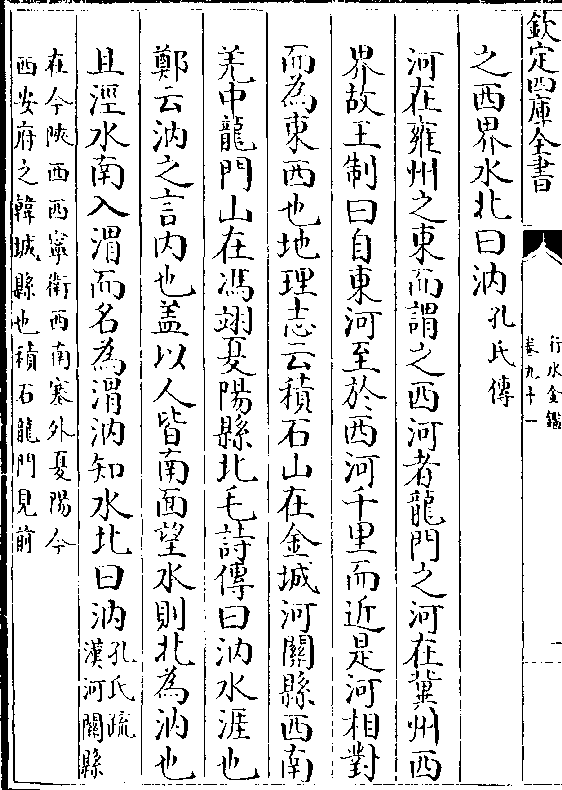 欽定四庫全書
行水金鑑
卷九十一
之西界水北曰汭孔氏傳
河在雍州之東而謂之西河者龍門之河在冀州西
界故王制曰自東河至於西河千里而近是河相對
而為東西也地理志云積石山在金城河關縣西南
羌中龍門山在馮翊夏陽縣北毛詩傳曰汭水涯也
鄭云汭之言内也盖以人皆南面望水則北為汭也
且涇水南入渭而名為渭汭知水北曰汭孔氏疏漢河關縣
在今陜西西寧衛西南塞外夏陽今
西安府之韓城縣也積石龍門見前